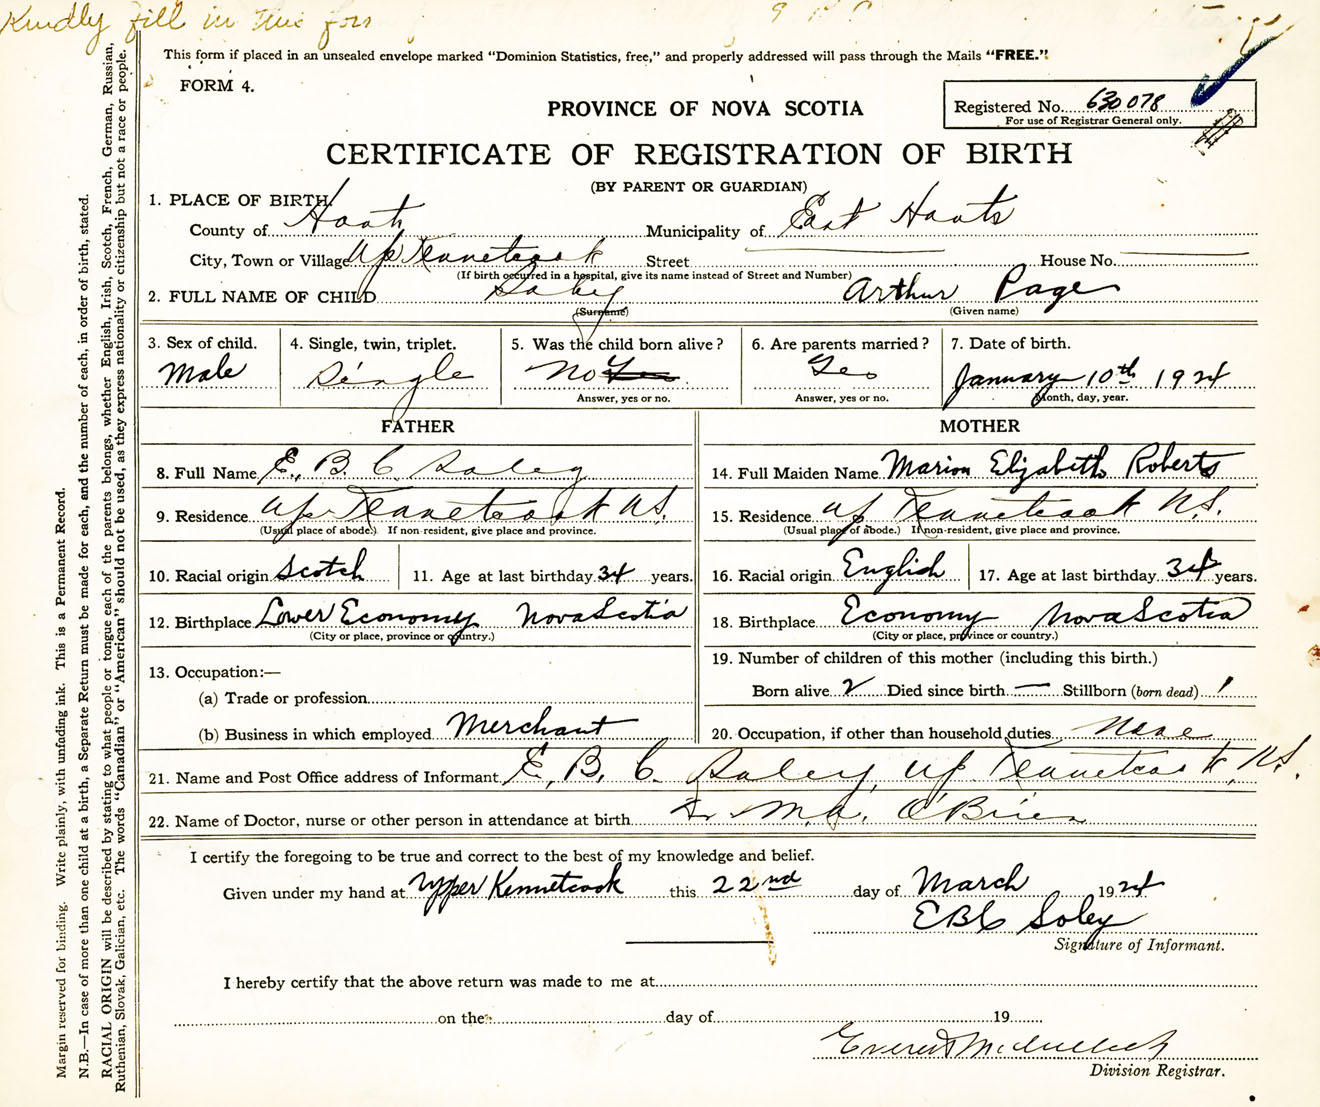 Kindly fill in this form
This form if placed in an unsealed envelope marked "Dominion Statistics, free," and properly addressed will pass through the Mails "FREE."
FORM 4.
PROVINCE OF NOVA SCOTIA
Registered No. 630078
For use of Registrar General only.
CERTIFICATE OF REGISTRATION OF BIRTH
(BY PARENT OR GUARDIAN)
1. PLACE OF BIRTH.
County of Hants Municipality of East Hants
City, Town or Village Up Kennetcook Street House No.
(If birth occurred in a hospital, give its name instead of Street and Number)
2. FULL NAME OF CHILD Soley Arthur Page
(Surname) (Given name)
3. Sex of child. 4. Single, twin, triplet. 5. Was the child born alive? 6. Are parents married? 7. Date of birth.
Male Single No Yes Yes January 10th 1924
Answer, yes or no. Answer, yes or no. Month, day, year.
FATHER MOTHER
8. Full Name E. B. C Soley 14. Full Maiden Name Marion Elizabeth Roberts
9. Residence Up Kennetcook N.S. 15. Residence Up Kennetcook N.S.
(Usual place of abode.) If non-resident, give place and province. (Usual place of abode.) If non-resident, give place and province.
10. Racial origin Scotch 11. Age at last birthday 34 years. 16. Racial origin English 17. Age at last birthday 34 years.
12. Birthplace Lower Economy Nova Scotia 18. Birthplace Economy Nova Scotia
(City or place, province or country.) (City or place, province or country.)
13. Occupation:— 19. Number of children of this mother (including this birth.)
(a) Trade or profession Born alive 2 Died since birth — Stillborn (born dead) 1
(b) Business in which employed Merchant 20. Occupation, if other than household duties None
21. Name and Post Office address of Informant E. B. C. Soley, Up Kennetcook, N.S.
22. Name of Doctor, nurse or other person in attendance at birth O'Brien
I certify the foregoing to be true and correct to the best of my knowledge and belief.
Given under my hand at Upper Kennetcook this 22nd day of March 1924
EBC Soley
Signature of Informant.
I hereby certify that the above return was made to me at
on the day of 19
Everett McCulloch
Division Registrar.
Margin reserved for binding. Write plainly, with unfading ink. This is a Permanent Record.
N.B.—In case of more than one child at a birth, a Separate Return must be made for each, and the number of each, in order of birth, stated.
RACIAL ORIGIN will be described by stating to what people or tongue each of the parents belongs, whether English, Irish, Scotch, French, German, Russian,
Ruthenian, Slovak, Galician, etc. The words "Canadian" or "American" should not be used, as they express nationality or citizenship but not a race or people.